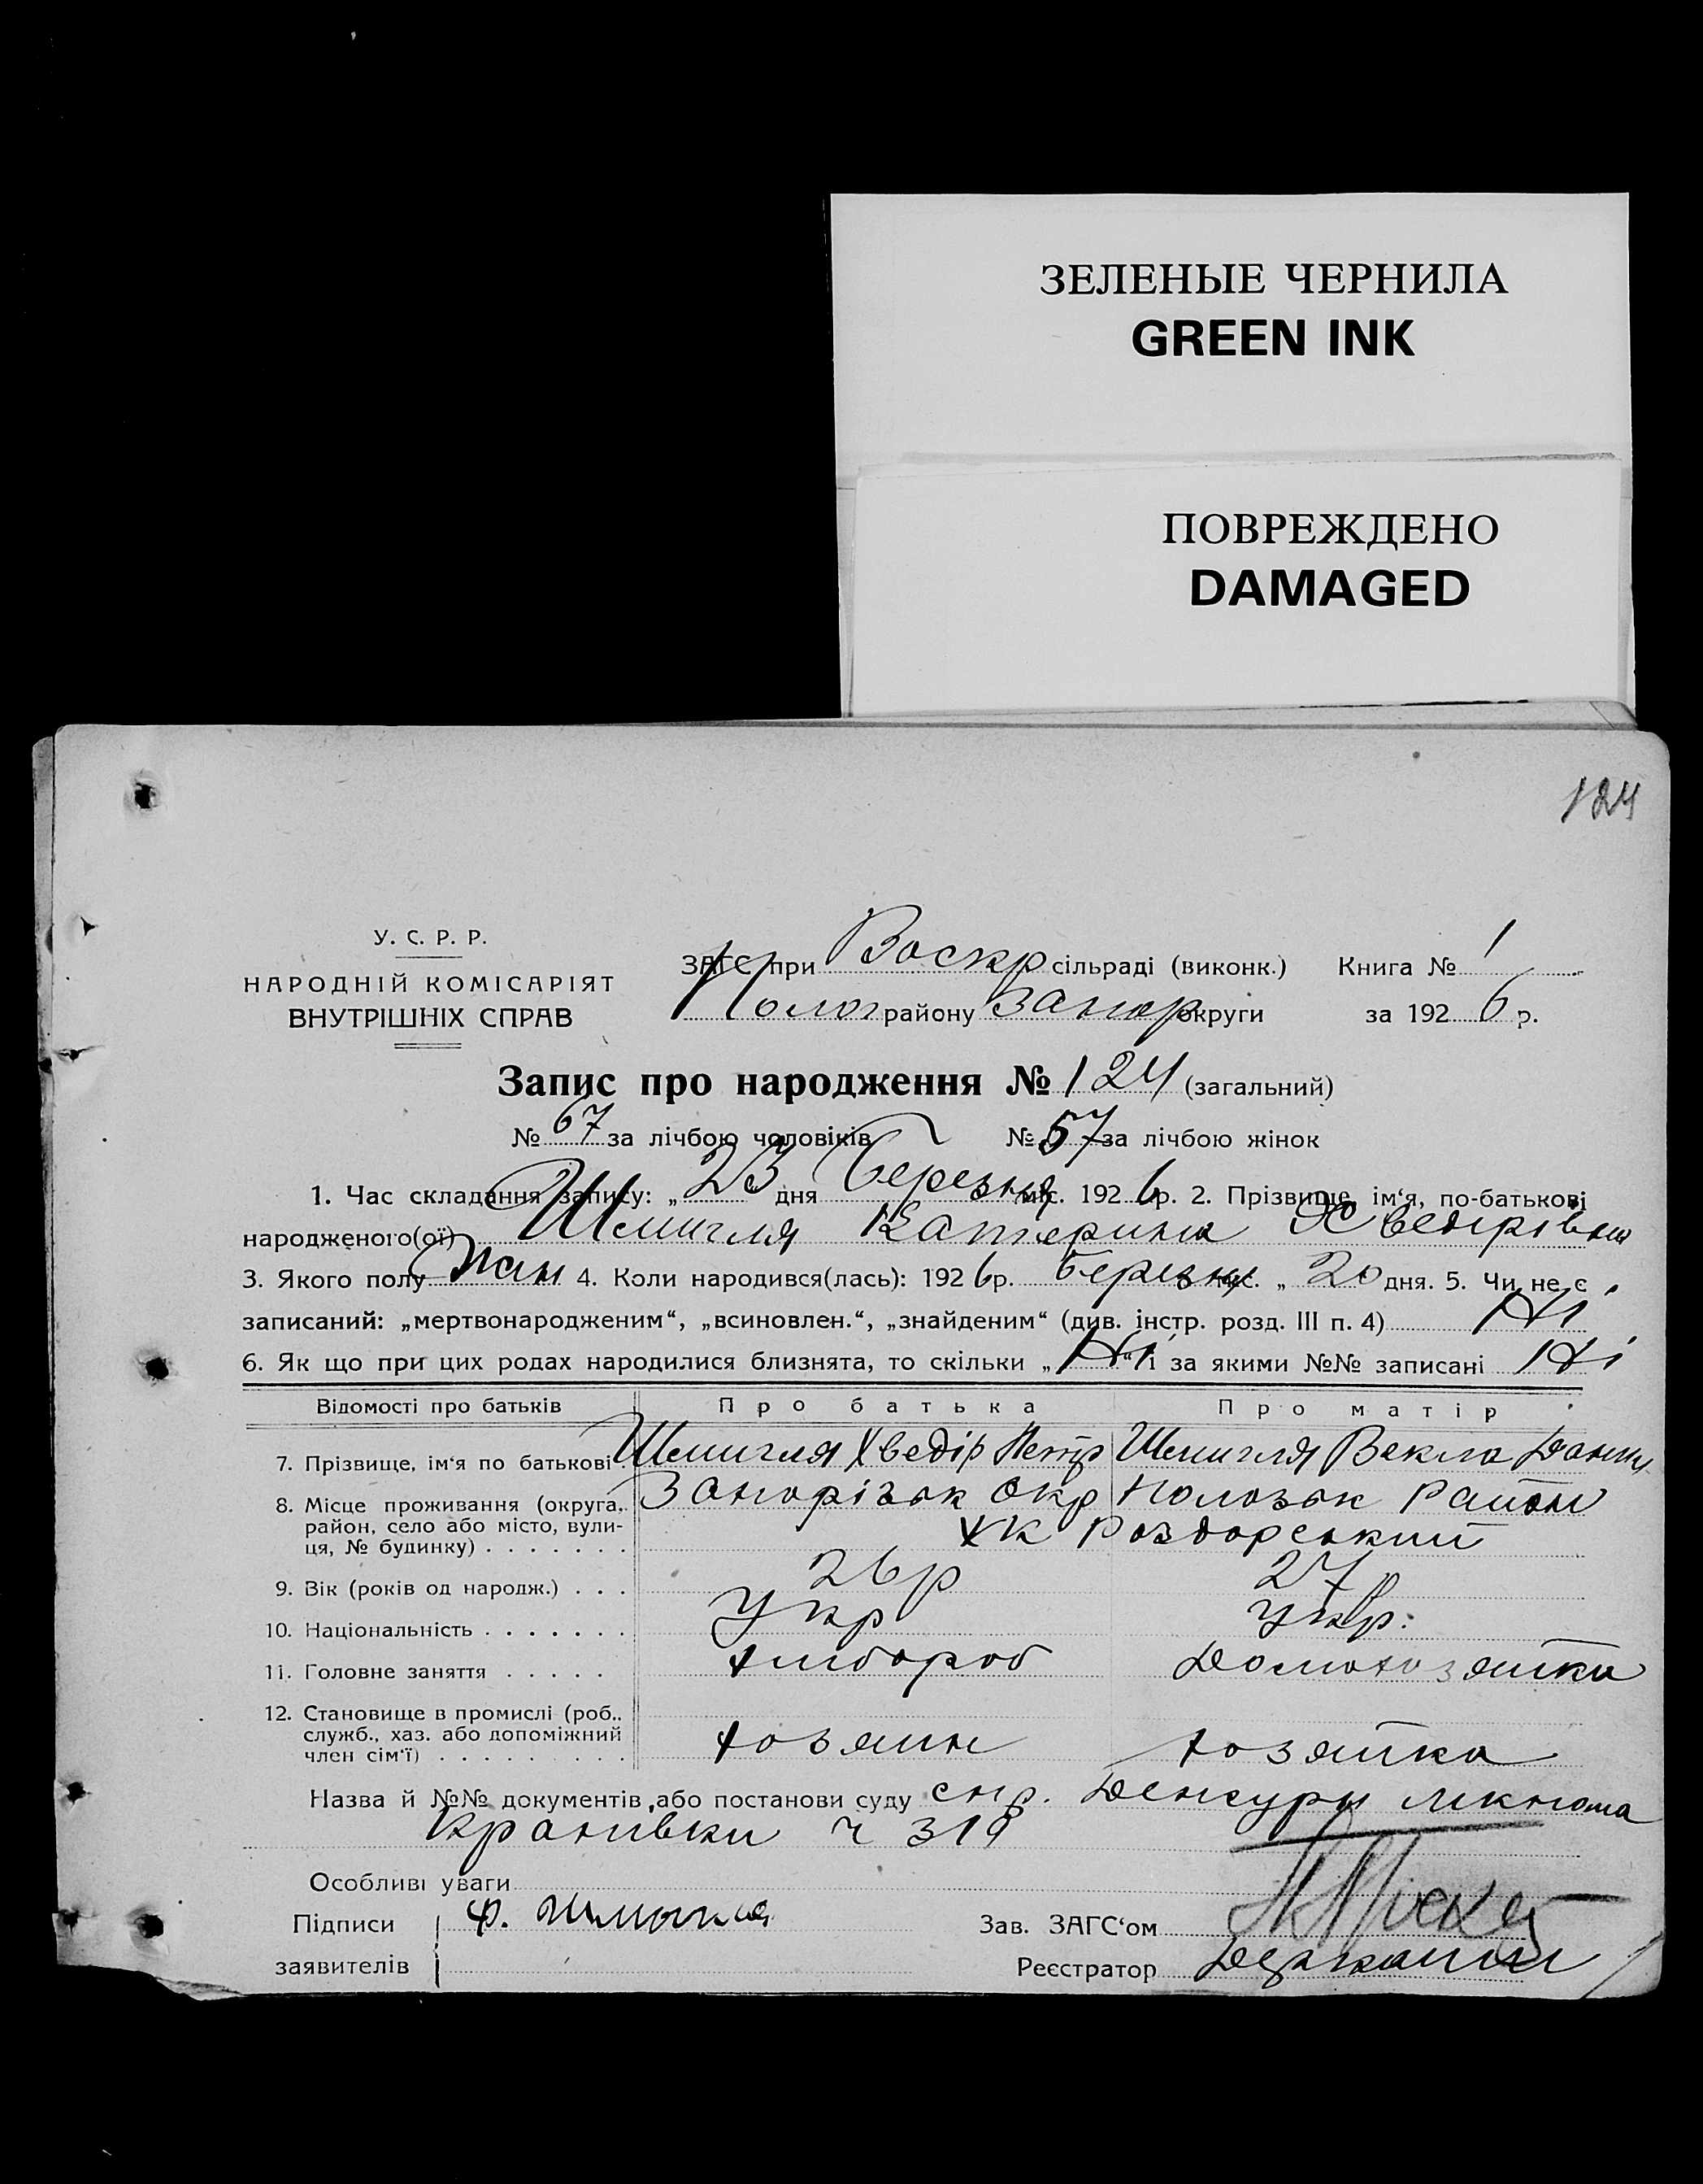 ЗЕЛЕНЫЕ ЧЕРНИЛА
GREEN INK
ПОВРЕЖДЕНО
DAMAGED
124
У. С. Р. Р.
НАРОДНІЙ КОМІСАРІЯТ
ВНУТРІШНІХ СПРАВ
ЗАГС при Воскр сільраді (виконк.) Книга № 1
Полог району Запор округи за 1926 р.
Запис про народження № 124 (загальний)
№ 67 за лічбою чоловіків № 57 за лічбою жінок
1. Час складання запису: „ 23 дня березня міс. 1926 р. 2. Прізвище, ім'я, по-батькові
народженого(ої) Шмигля Катерина Хведірівна
3. Якого полу жін 4. Коли народився(лась): 1926 р. березня міс. „ 20 дня. 5. Чи не є
записаний: „мертвонародженим“, „всиновлен.“, „знайденим“ (див. інстр. розд. III п. 4) Ні
6. Як що при цих родах народилися близнята, то скільки „ Ні “ і за якими №№ записані Ні
Відомості про батьків Про батька Про матір
7. Прізвище, ім‘я по батькові Шмигля Хведір Петр Шмигля Векла Данил
8. Місце проживання (округа, район, село або місто, вули- ця, № будинку) Запорізьк Окр Полозьк Район
хк Роздорський
9. Вік (років од народж.) 26 р 27 р
10. Національність Укр Укр.
11. Головне заняття хлібороб Домохозяйка
12. Становище в промислі (роб., служб., хаз. або допоміжний член сім‘ї) хозяин хозяйка
Назва й №№ документів, або постанови суду
ч 319
Особливі уваги
Підписи Ф. Зав. ЗАГС‘ом
заявителів Реєстратор